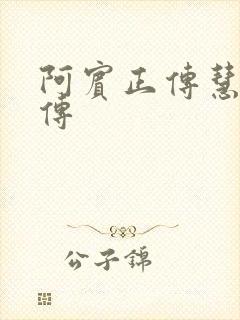 阿賓正傳慧
傳
公子錦